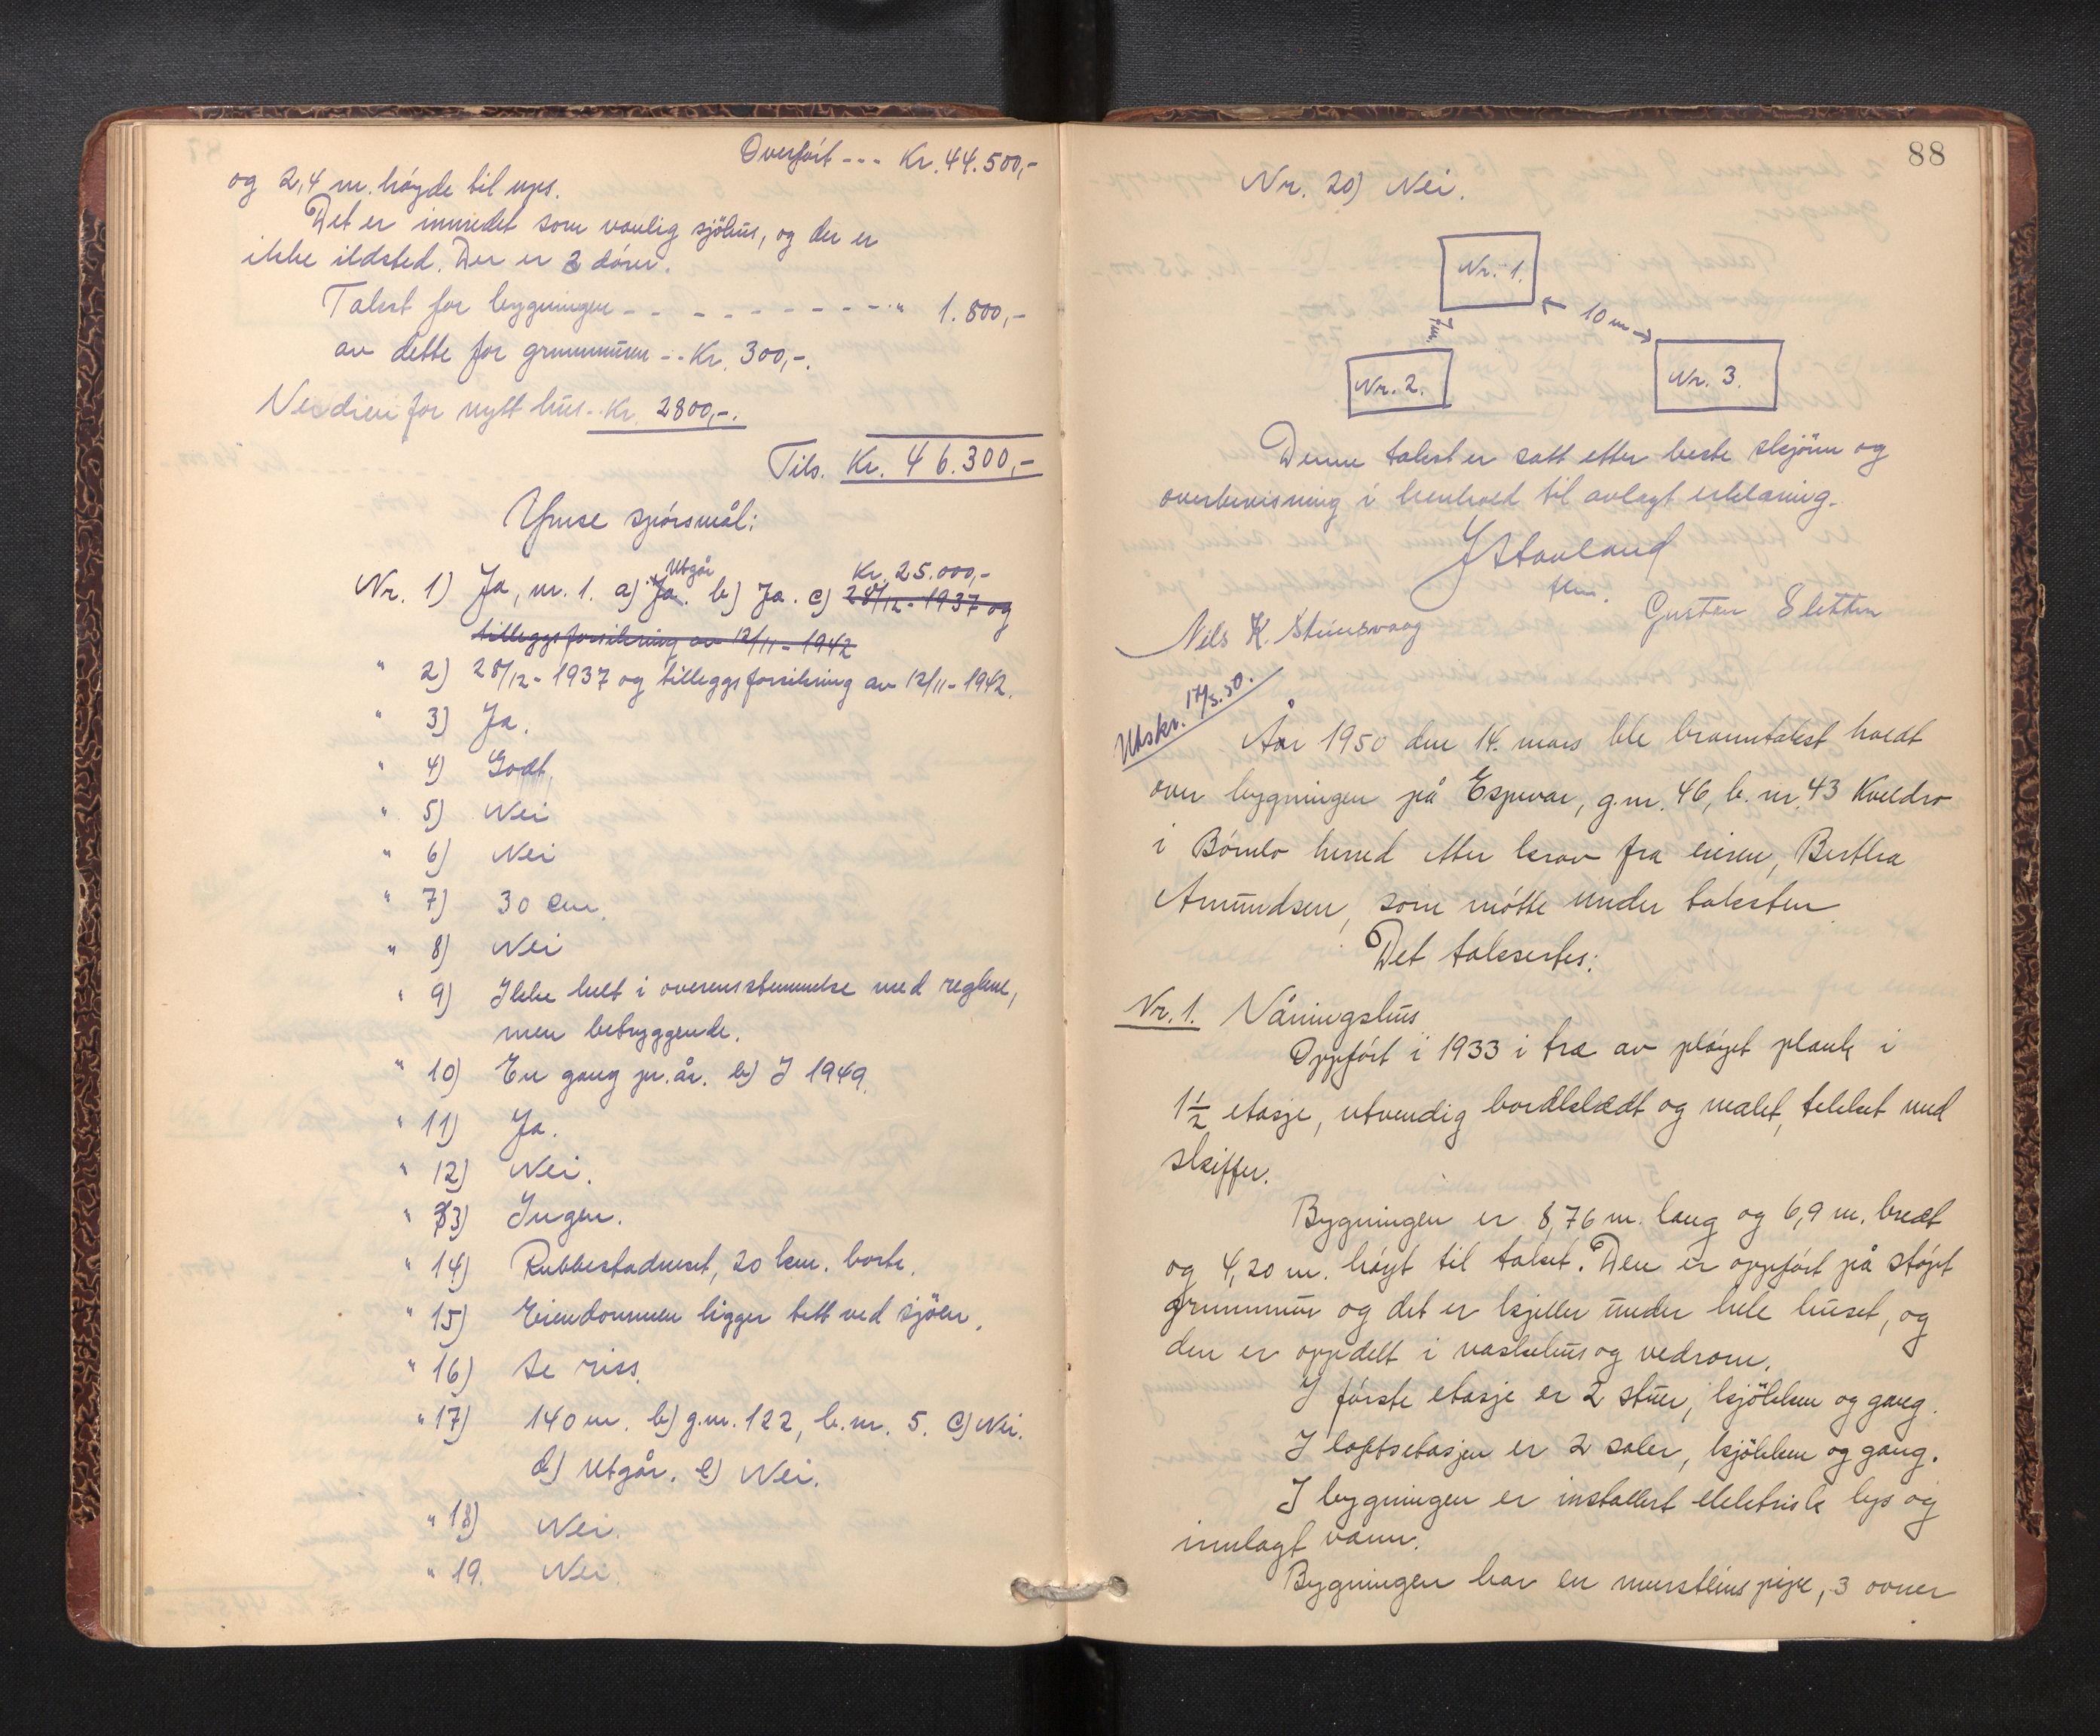 Overført --- Kr. 44.500,-
og 2,4 m. høyde til ups.
Det er innredet som vanlig sjöhus, og der er
ikke ildsted. Der er 3 dører.
Takst for bygningen - - - - - - - - - " 1.800,-
av dette for grunnmuren -- Kr. 300,-.
Verdien for nytt hus -- Kr. 2800,-.
Tils. Kr. 46.300,-
Ymse spörsmål:
Utgår Kr. 25.000,-
Nr. 1) Ja, nr. 1. a) Ja. b) Ja. c) 28/12 - 1937 og
tilleggsforsikring av 12/11 - 1942
" 2) 28/12 - 1937 og tilleggsforsikring av 12/11 - 1942.
" 3) Ja.
" 4) Godt.
" 5) Nei
" 6) Nei
" 7) 30 cm.
" 8) Nei
" 9) Ikke helt i overensstemmelse med reglene,
men betryggende.
" 10) En gang pr. år. b) I 1949.
" 11) Ja.
" 12) Nei.
" 13) Ingen.
" 14) Rubbestadneset, 20 km. borte.
" 15) Eiendommen ligger tett ved sjöen.
" 16) Se riss.
" 17) 140 m. b) g.nr. 122, b.nr. 5. c) Nei.
d) Utgår. e) Nei.
" 18) Nei.
" 19. Nei.
88
Nr. 20) Nei.
Nr. 1.
10 m
7 m.
Nr. 2.
Nr. 3.
Denne takst er satt etter beste skjönn og
overbevisning i henhold til avlagt erklæring.
J Stavland
Nils K. Steinsvaag
Gustav Sletten
Utskr. 17/3. 50.
År 1950 den 14. mars ble branntakst holdt
over bygningen på Espevær, g.nr. 46, b.nr. 43 Kveldro
i Bömlo herred etter krav fra eieren, Bertha
Amundsen, som møtte under taksten.
Det takseres:
Nr. 1. Våningshus
Oppfört i 1933 i tre av pløyet plank i
1 1/2 etasje, utvendig bordkledt og malet, tekket med
skiffer.
Bygningen er 8,76 m. lang og 6,9 m. bredt
og 4,20 m. høyt til taket. Den er oppfört på støpt
grunnmur og det er kjeller under hele huset, og
den er oppdelt i vaskehus og vedrom.
I første etasje er 2 stuer, kjökken og gang.
I loftsetasjen er 2 saler, kjökken og gang.
I bygningen er installert elektrisk lys og
innlagt vann.
Bygningen har en mursteins pipe, 3 ovner